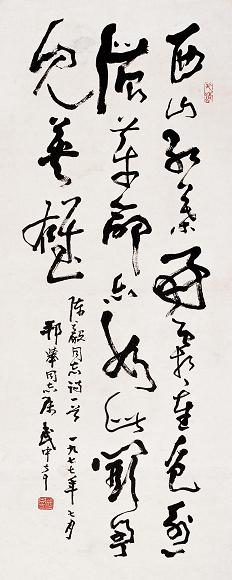 西山红叶好霜重色愈
浓革命亦如此斗争
见英雄
陈毅同志诗一首 一九七七年七月
同志属 武中奇